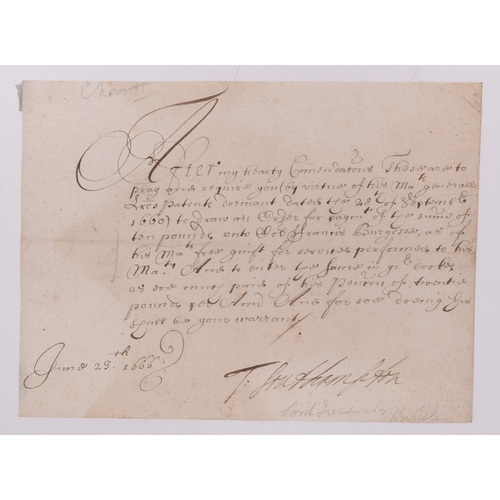 Chas II
After my hearty Comendatons These are to
pray and require you (by virtue of his Ma.ts generall
Lres Patents dormant dated the 28th of Septemb.
1660) to draw an Order for paym.t of the sume of
ten pounds unto Col Francis Burgesse, as of
his Ma.ts free guift for services performed to his
Ma.ty And to enter the same in yo.r bookes
as soe much paid of his Pencon of twentie
pounds per Ann̄ And for soe doeing this
shall be your warrant
June 23.th 1666.
T: Southampton
Lord Treasurer